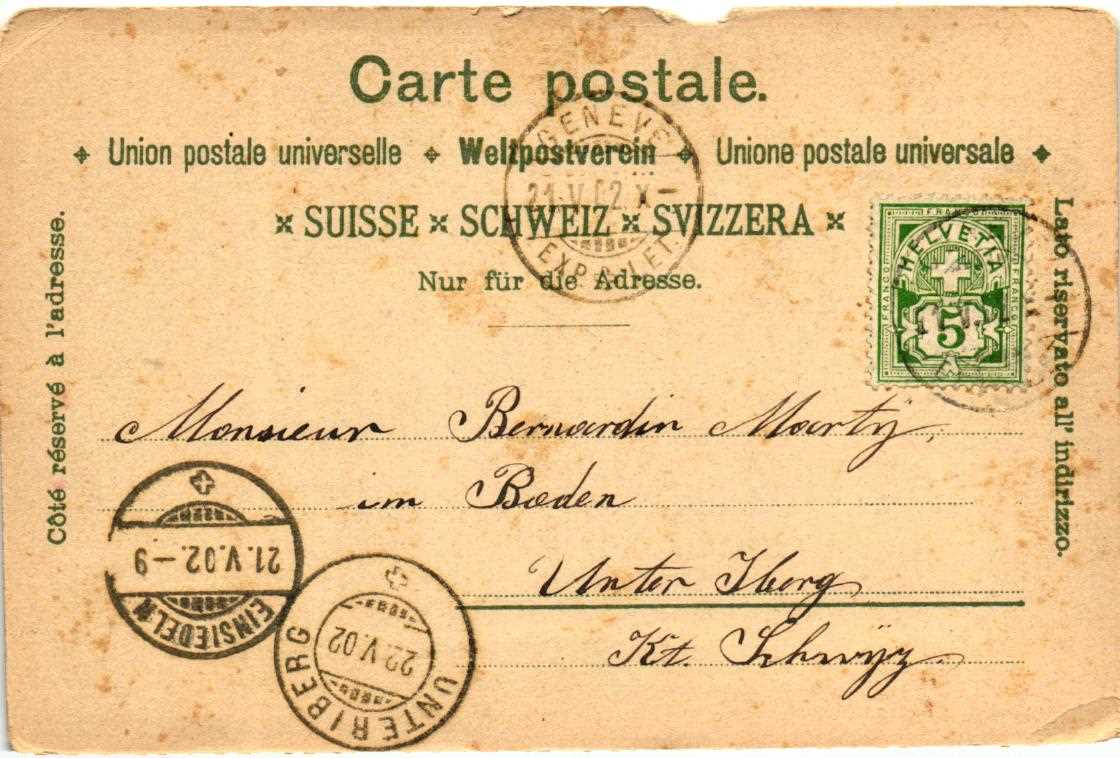 Carte postale.
Union postale universelle Weltpostverein Unione postale universale
SUISSE SCHWEIZ SVIZZERA
Nur für die Adresse.
Côté réservé à l'adresse.
Lato riservato all' indirizzo.
GENEVE
21.V.02.X-
EXP. LET.
FRANCO
HELVETIA
FRANCO
FRANCO
5
Monsieur Bernardin Marty,
im Boeden
Unter Iberg
Kt. Schwyz.
21.V.02.-9
EINSIEDELN
22.V.02
UNTERIBERG